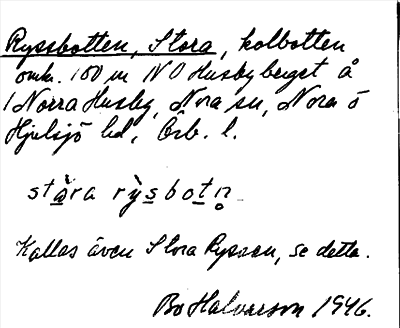 Ryssbotten, Stora, kolbotten
omkr. 100 m NO Husbyberget å
1 Norra Husby, Nora sn, Nora o
Hjulsjö bd, Örb. l.
stàra rỳsbotn̥
Kallas även Stora Ryssen, se detta.
Bo Halvarson 1946.